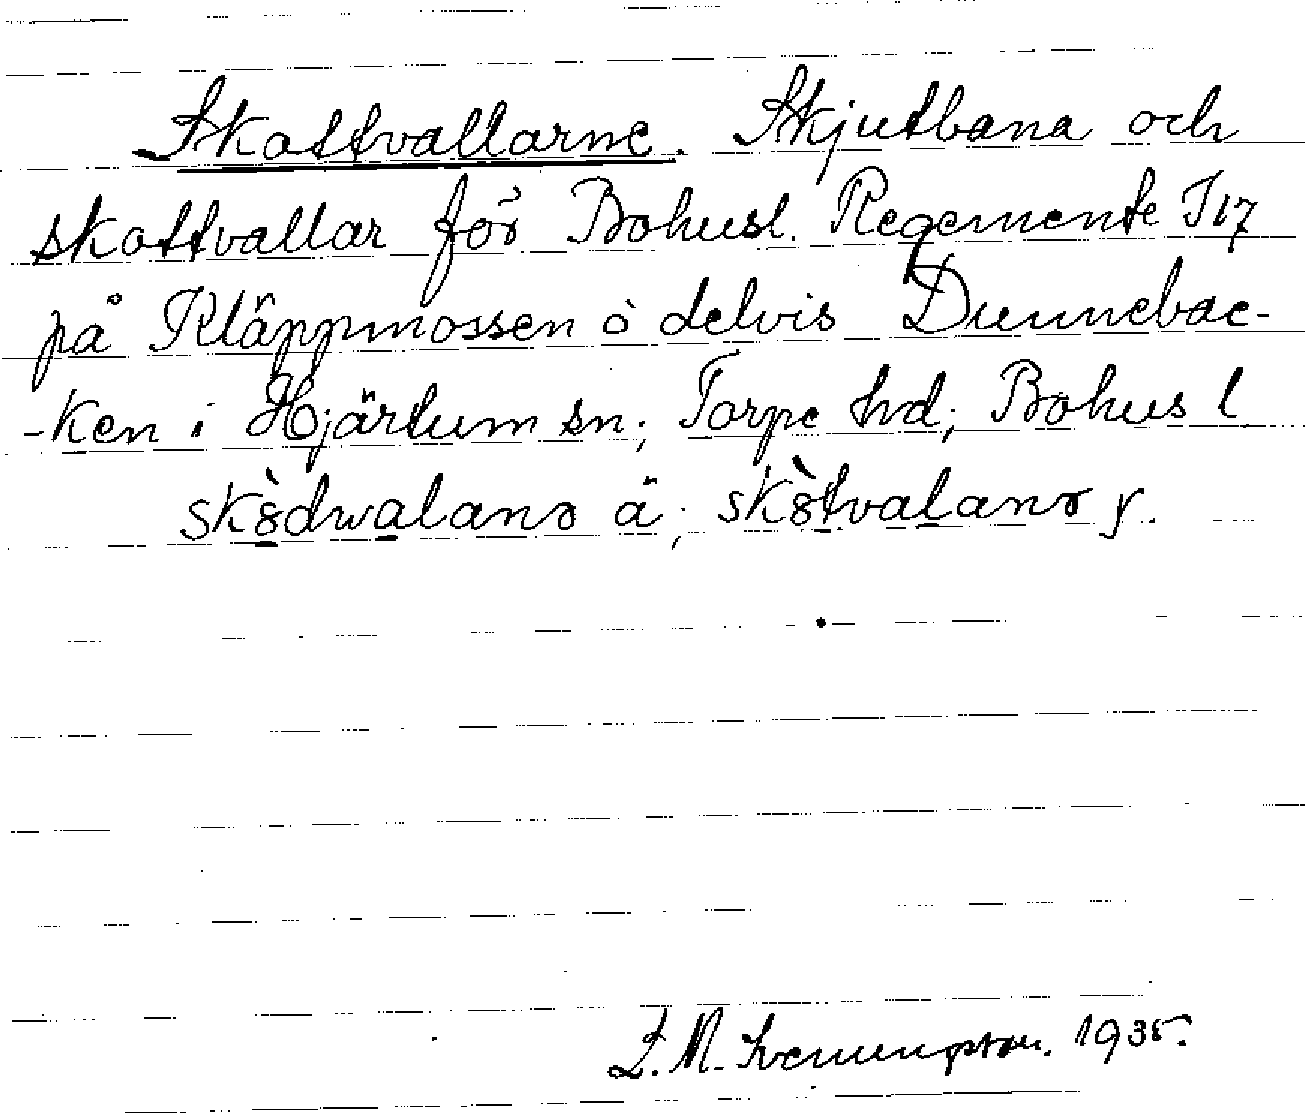 Skottvallarne. Skjutbana och
skottvallar för Bohusl. Regemente I 17
på Kläppmossen ò delvis Dunnebac-
-ken i Hjärtum sn; Torpe hd; Bohus l
skòdwalanɘ ä; skòtvalanɘ y.
1935.